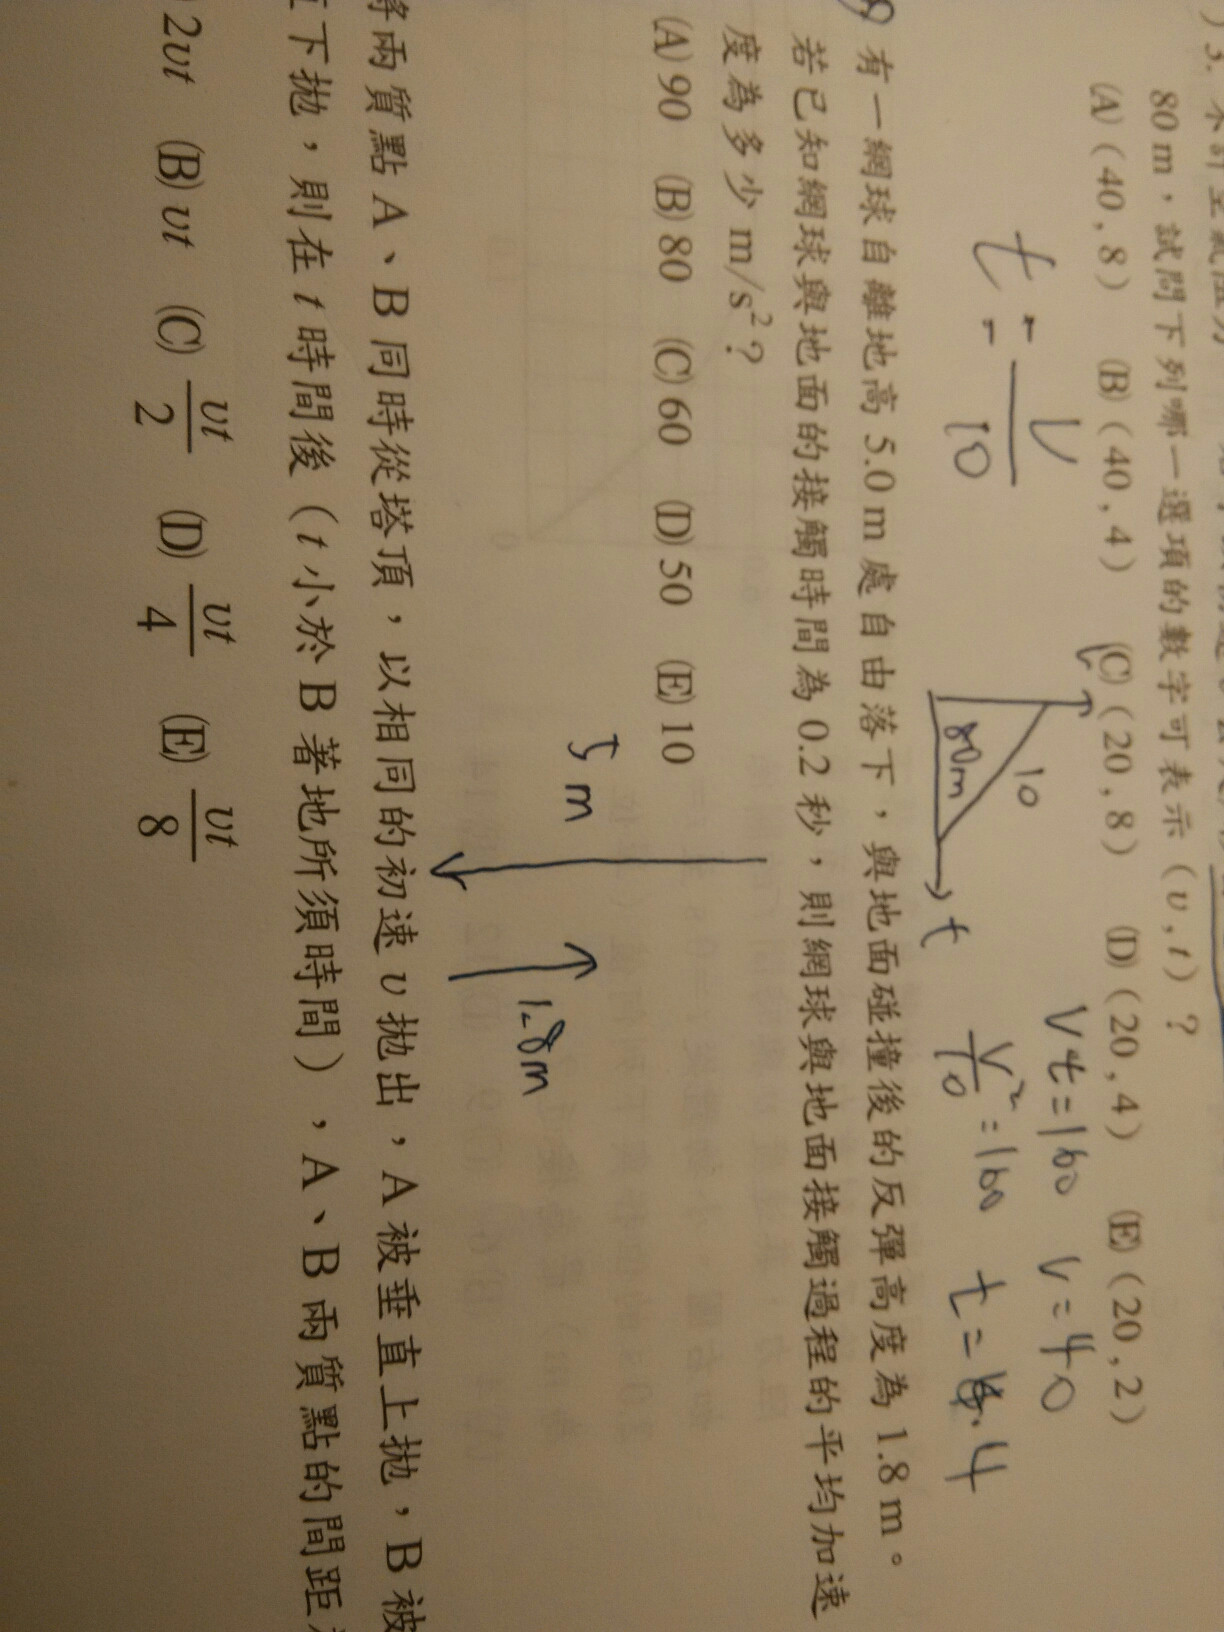 80 m，試問下列哪一選項的數字可表示（v , t）？
(A)（40 , 8） (B)（40 , 4） (C)（20 , 8） (D)（20 , 4） (E)（20 , 2）
t = V/10
80m
10
t
Vt=160 V=40
V²/10 =160 t= 4
有一網球自離地高 5.0 m 處自由落下，與地面碰撞後的反彈高度為 1.8 m。
若已知網球與地面的接觸時間為 0.2 秒，則網球與地面接觸過程的平均加速
度為多少 m/s²？
(A) 90 (B) 80 (C) 60 (D) 50 (E) 10
5 m
1.8m
兩質點 A、B 同時從塔頂，以相同的初速 v 拋出，A 被垂直上拋，B 被
下拋，則在 t 時間後（t 小於 B 著地所須時間），A、B 兩質點的間距
2vt (B) vt (C) vt/2 (D) vt/4 (E) vt/8